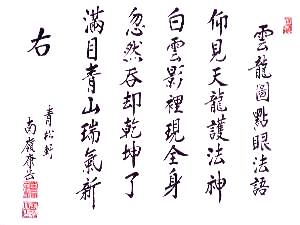 雲龍圖點眼法語
仰見天龍護法神
白雲影裡現全身
忽然吞却乾坤了
滿目青山瑞氣新
右
青松軒
南嶺康云